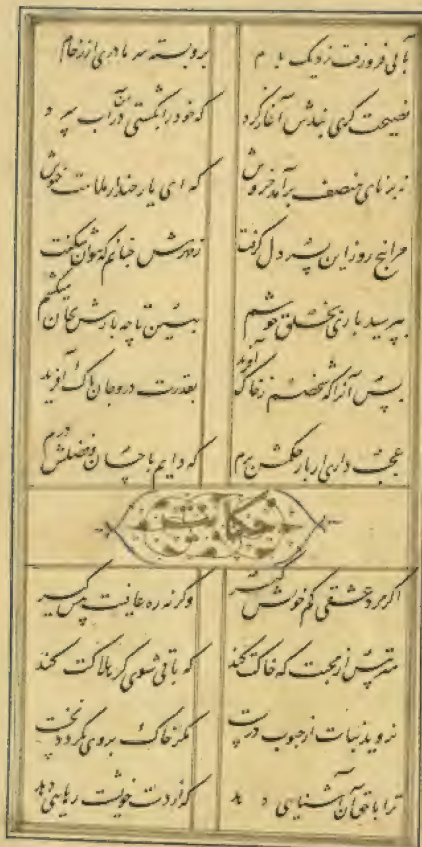 بآبی فرو رفت نزدیک بام بروبسته سرما دری از رخام
نصیحت گری پندش آغاز کرد که خود را بکشتی درین آب سرد
ز برنای منصف برآمد خروش که ای یار چند از ملامت خموش
مرا پنج روز این پسر دل گرفت ز مهرش چنانم که نتوان شکفت
نپرسید باری بخلق خوشم ببین تا چه بارش بجان میکشم
پس آنرا که شخصم ز خاک آورید بقدرت درو جان پاک آفرید
عجب داری ار بار حکمش برم که دایم باحسان و فضلش درم
حکایت
اگر مرد عشقی کم خویش گیر وگرنه ره عافیت پیش گیر
مترس از محبت که خاکت کند که باقی شوی گر هلاکت کند
نروید نبات از حبوب درست مگر خاک بروی بگردد نخست
ترا با حق آن آشنایی دهد که از دست خویشت رهایی دهد